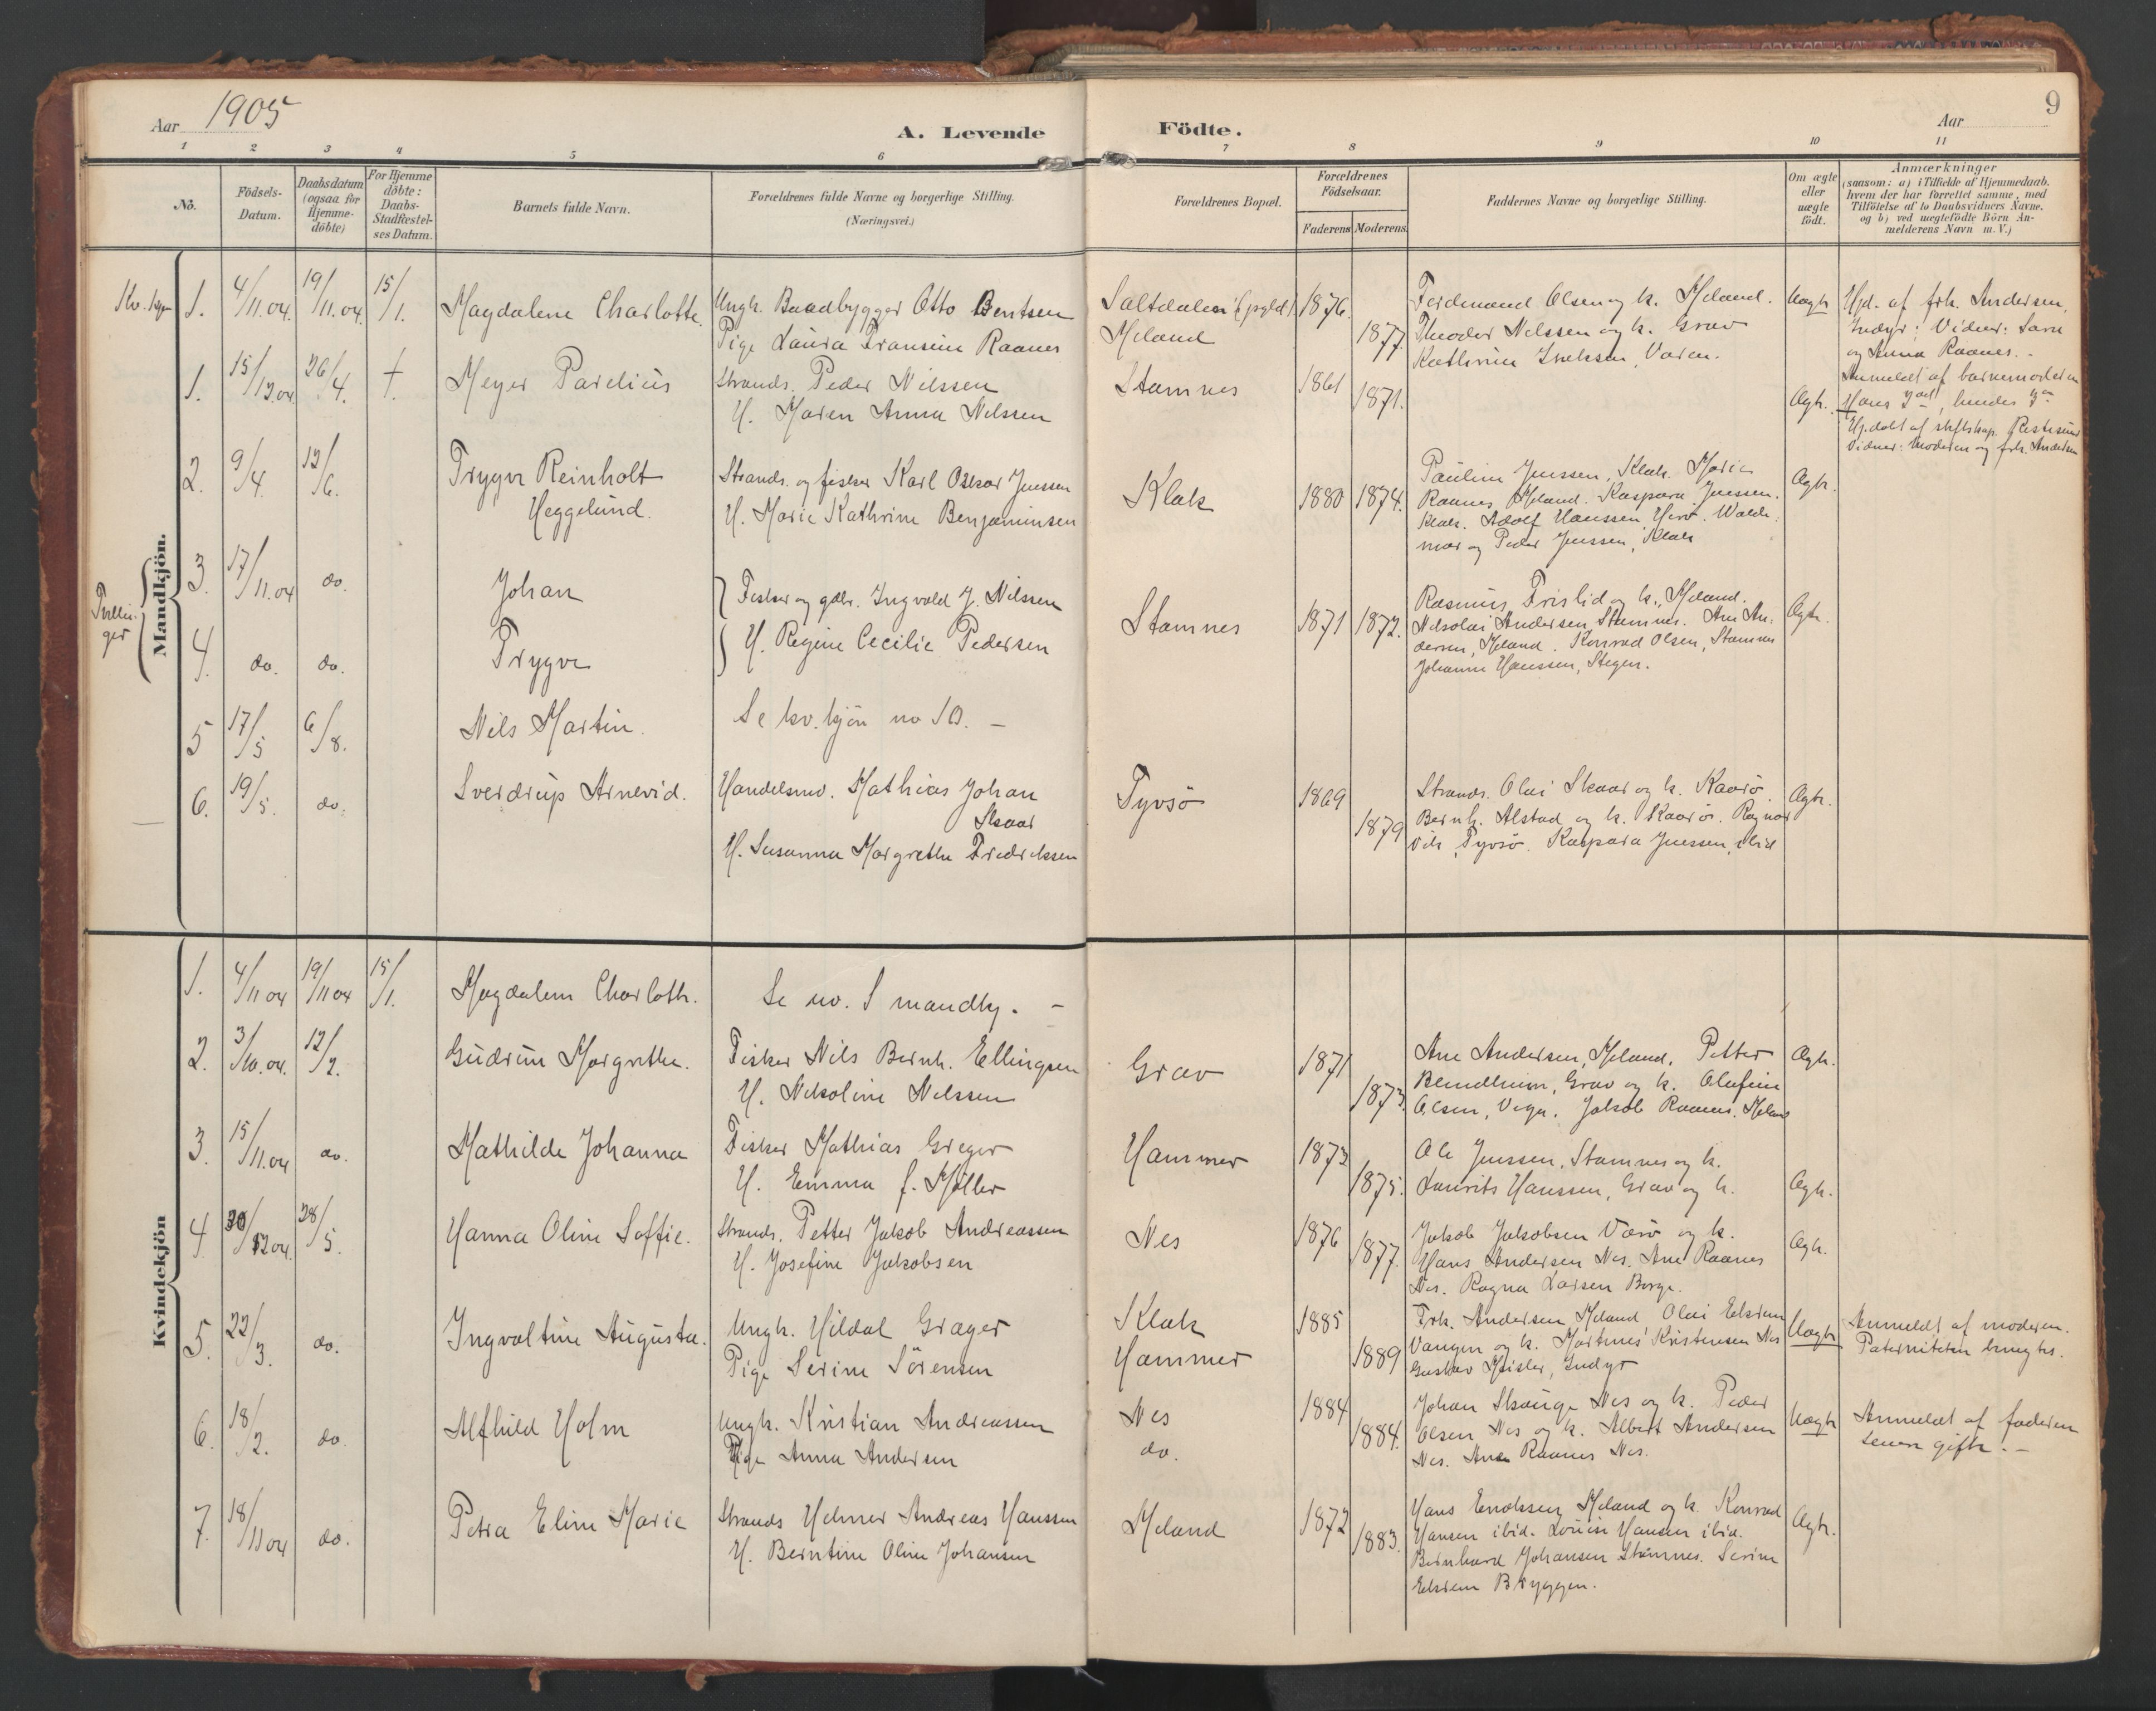 Aar 1905
A. Levende Födte.
Aar
9
1 2 3 4 5 6 7 8 9 10 11
No.
Födsels-Datum.
Daabsdatum (ogsaa for Hjemme-döbte)
For Hjemme döbte: Daabs-Stadfæstelses Datum.
Barnets fulde Navn.
Forældrenes fulde Navne og borgerlige Stilling.
(Næringsvei.)
Forældrenes Bopæl.
Forældrenes Födselsaar.
Faderens Moderens
Faddernes Navne og borgerlige Stilling.
Om ægte eller uægte födt.
Anmærkninger
(saasom: a) i Tilfælde af Hjemmedaab.
hvem der har forrettet samme, med
Tilföielse af to Daabsvidners Navne.
og b) ved uegtefödte Börn An-
melderens Navn m. V.)
Mandkjön.
Kv. kjøn 1. 4/11.04. 19/11.04. 15/1. Magdalene Charlotte.
Ungk. Baadbygger Otto Bentsen
Pige Laura Fransine Raanes
Saltdalen
Meland
1876. 1877.
Ferdinand Olsen og k. Meland.
Theodor Nilssen og k. Grav
Kathrine
Uægte
Hjd. af frk. Andersen,
Indyr: Vidner:
og Anna Raanes. -
Anmeldt af barnemoderen
1. 15/12.04 26/4. † Meyer Parelius
Strands. Peder Nilssen
H. Maren Anna Nilssen
Stamnes
1861 1871.
Ægte.
Hans 3die, hendes
Hj.døbt af
Vidner: Moderen og frk. Andersen
2. 9/4. 12/6. Trygve Reinholt
Heggelund.
Strands. og fisker Karl Oskar Jenssen
H. Marie Kathrine Benjaminsen
Klak
1880 1874.
Pauline Jenssen, Klak. Marie
Raanes Meland. Kaspara Jenssen.
Klak. Adolf Hanssen, Waldemar og Peder Jenssen, Klak
Ægte.
Tvillinger
3. 17/11.04 do. Johan
4. do. do. Trygve
Fisker og gdbr. Ingvald J. Nilssen
H. Regine Cecilie Pedersen
Stamnes
1871 1872.
Rasmus Frislid og k., Meland.
Nikolai Andersen, Stamnes. Ane An-
dersen, Meland. Konrad Olsen, Stamnes
Johanne Hanssen, Stegen.
Ægte.
5 17/5 6/8. Nils Martin.
Se kv. kjøn no 10. -
6. 19/5. do. Sverdrup Arnevid.
Handelsmd. Mathias Johan
Skaar
H. Susanna Margrethe Fredriksen
Tyvsø
1869 1879
Strands. Olai Skaar og k. Kaarø.
Bernh. Alstad og k. Kaarø. Ragnar
Vik, Tyvsø. Kaspara Jenssen, ibid
Ægte.
Kvindekjön
1. 4/11 04 19/11 04 15/1. Magdalene Charlotte.
Se no. 1 mandkj. -
2. 3/10.04. 12/2. Gudrun Margrethe.
Fisker Nils Bernh. Ellingsen
H. Nikoline Nilssen
Grav
1871 1873.
Ane Andersen, Meland, Petter
Blindheim, Grav og k. Olufine
Olsen, Vega. Jakob Raanes. Meland
Ægte.
3. 15/11.04 do. Mathilde Johanna
Fisker Mathias Greger
H. Emma f. Møller
Hammer
1873 1875.
Ole Jenssen, Stamnes og k.
Laurits Hanssen, Grav og k.
Ægte.
4. 30/12 04. 28/5. Hanna Oline Soffie.
Strands. Petter Jakob Andreassen
H. Josefine Jakobsen
Nes
1876 1877.
Jakob Jakobsen Værø og k.
Hans Andersen Nes. Ane Raanes
Nes. Ragna Larsen Borge.
Ægte.
5. 22/3. do. Ingvaltine Augusta.
Ungk. Hildal Græger
Pige Serine Sørensen
Klak
Hammer
1885 1889
Frk. Andersen, Meland, Olai
Vangen og k. Martinus Kristensen Nes
Gustav Meisler, Indyr
Uægte
Anmeldt af moderen.
Paterniteten benægtes.
6. 18/2. do. Alfhild Holm
Ungk. Kristian Andreassen
Pige Anna Andersen
Nes
do.
1884 1884.
Johan Skauge Nes og k. Peder
Olsen Nes og k. Albert Andersen
Nes. Ane Raanes Nes.
Uægte
Anmeldt af faderen
senere gifte. -
7. 18/11 04 do. Petra Eline Marie
Strands Helmer Andreas Hanssen
H. Berntine Oline Johansen
Meland
1872 1883.
Hans Enoksen, Meland og k. Konrad
Hansen ibid. Louise Hansen ibid.
Bernhard Johansen Stamnes. Serine
Bryggen.
Ægte.